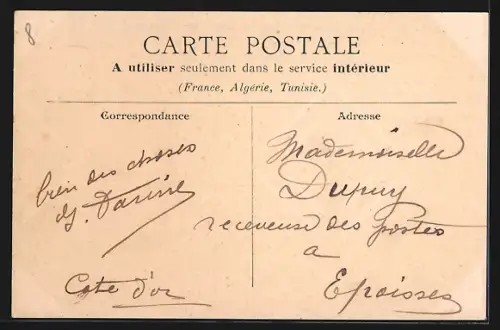 8
CARTE POSTALE
A utiliser seulement dans le service intérieur
(France, Algérie, Tunisie.)
Correspondance
Adresse
bien des choses
Mademoiselle
Dupuy
receveuse des postes
a
Epoisses
Cote d'or